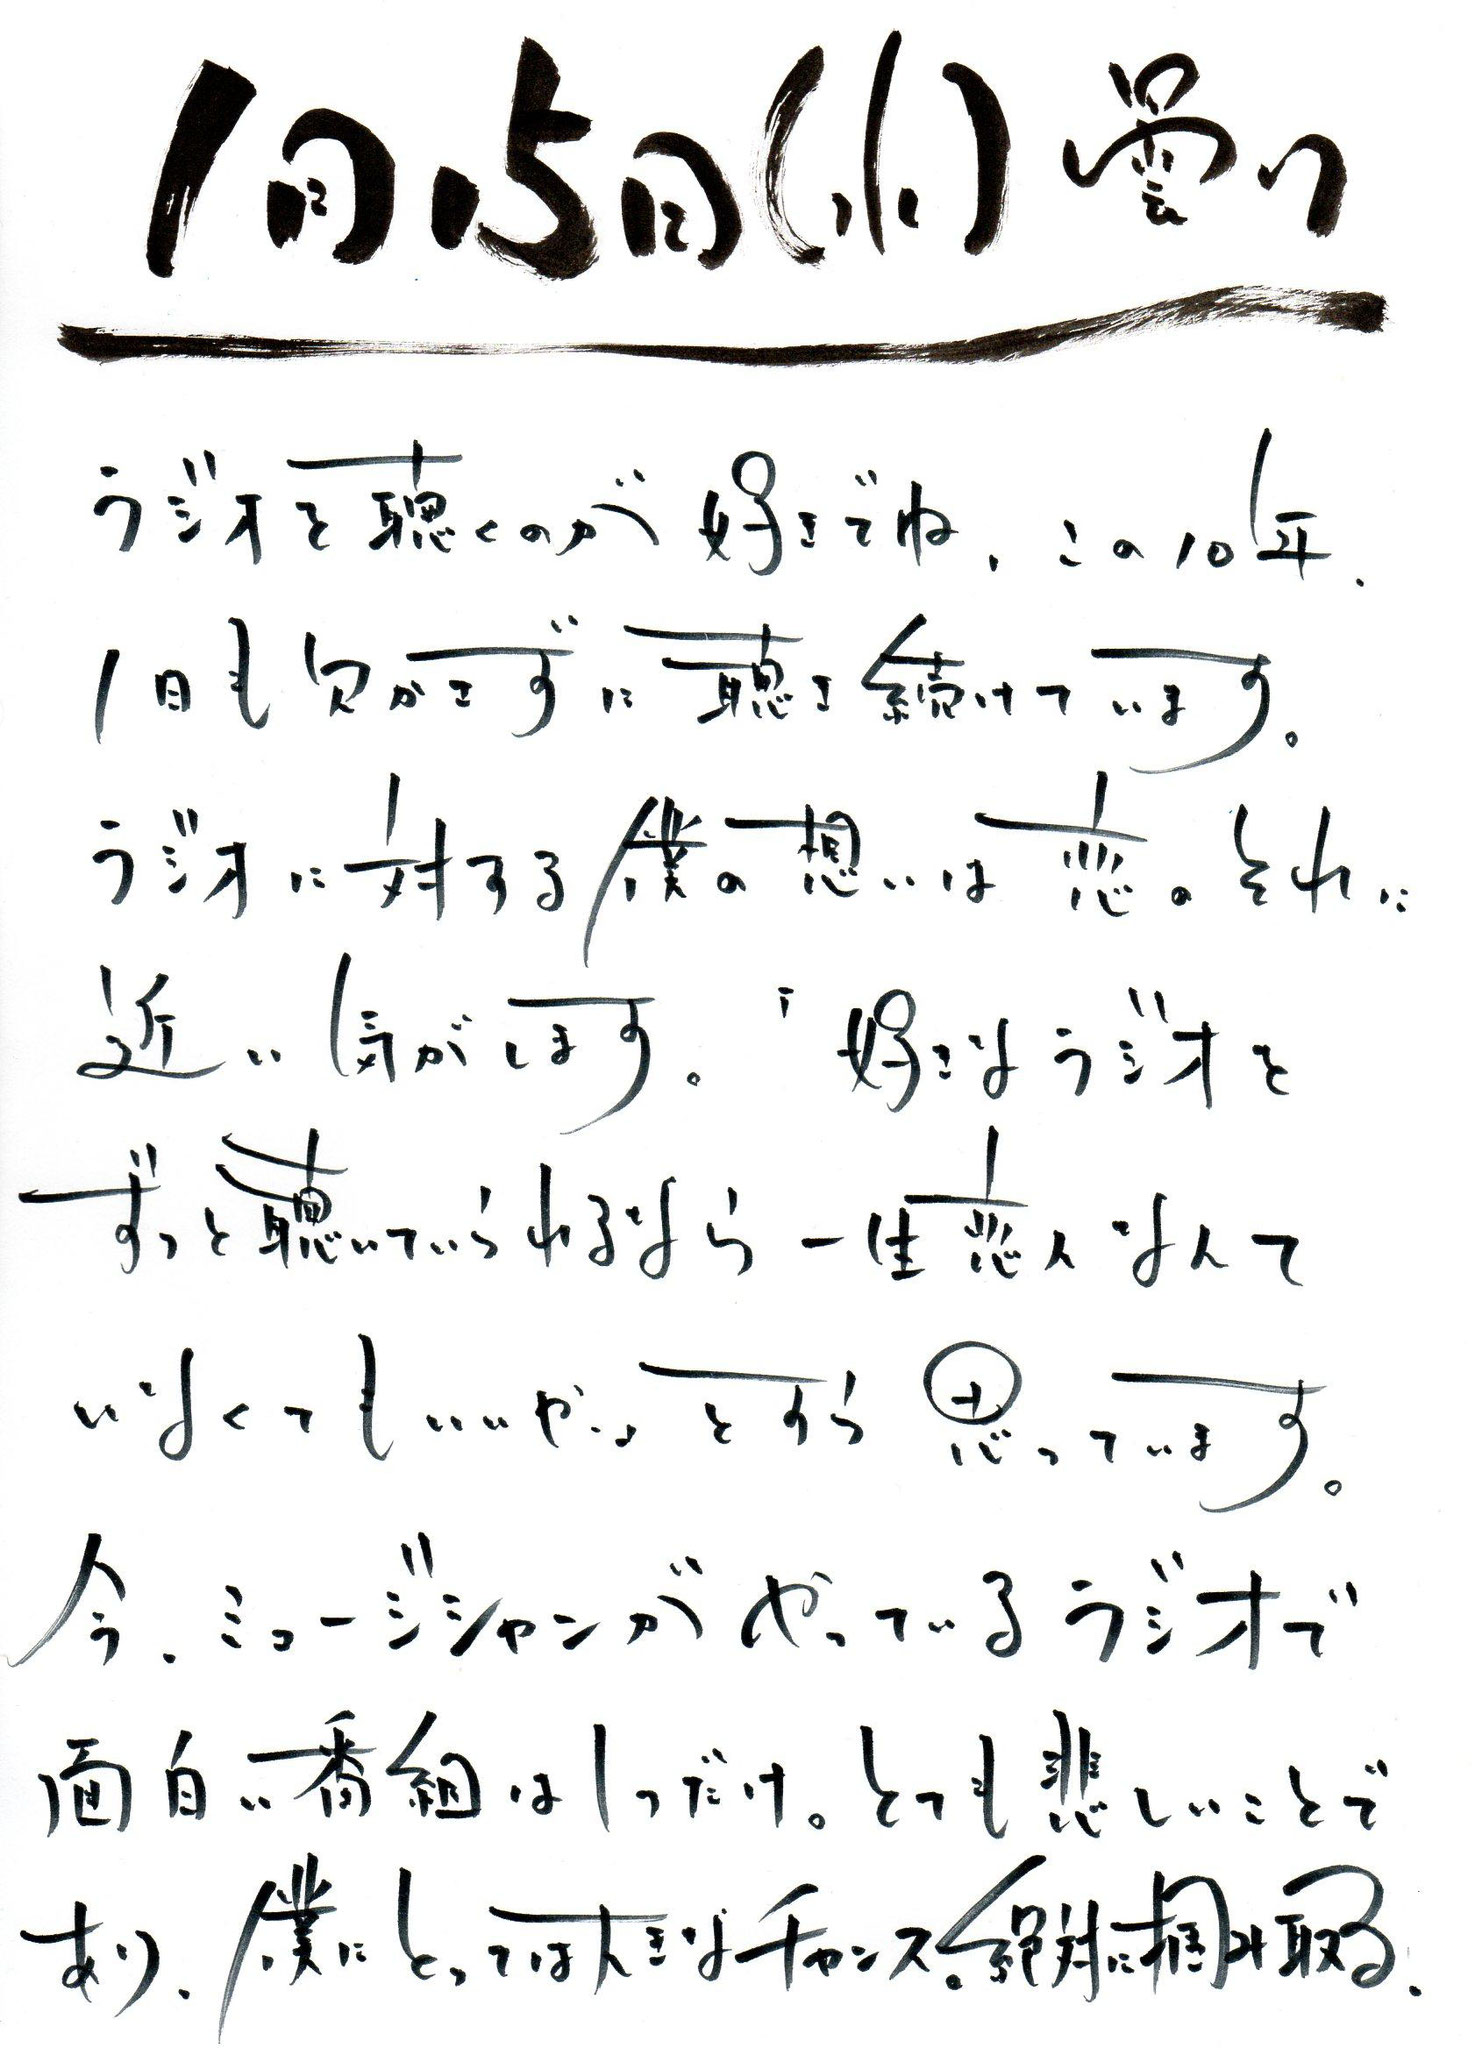 1月15日(水)曇り
ラジオを聴くのが好きでね、この10年、
1日も欠かさずに聴き続けています。
ラジオに対する僕の想いは恋のそれに
近い気がします。「好きなラジオを
ずっと聴いていられるなら一生恋人なんて
いなくてもいいや」とすら思っています。
今、ミュージシャンがやっているラジオで
面白い番組は1つだけ。とても悲しいことで
あり、僕にとっては大きなチャンス。絶対に掴み取る。